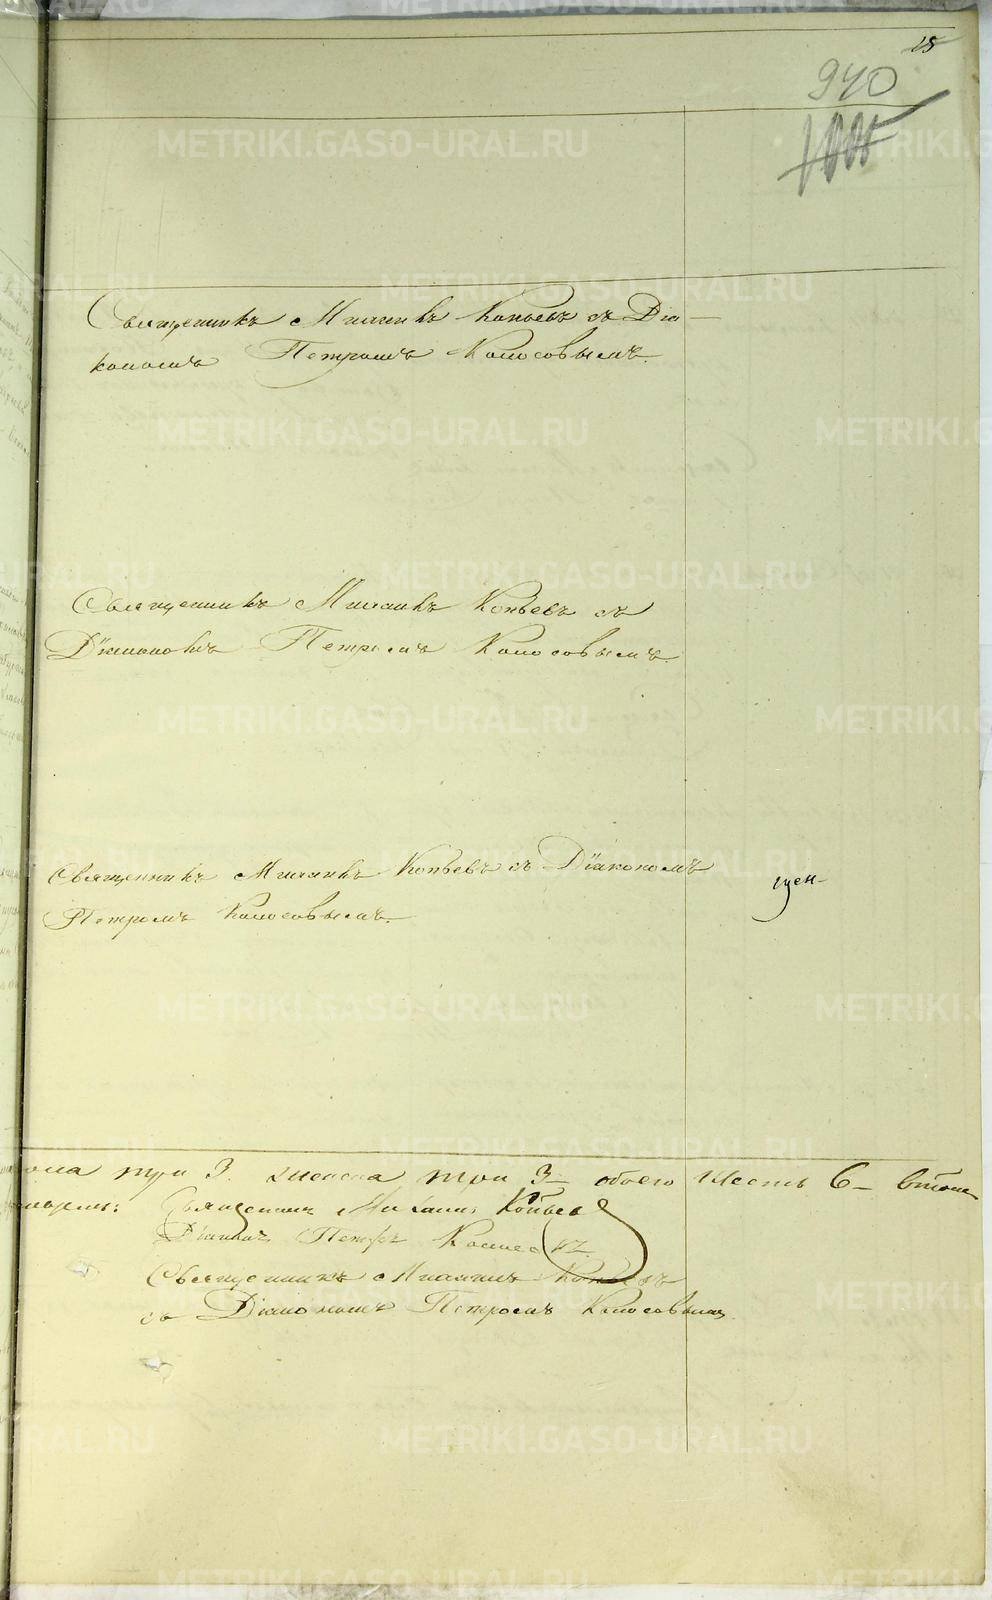 18
940
Священникъ Михаилъ Копьевъ съ Дiа-
кономъ Петромъ Колосовымъ.
Священникъ Михаилъ Копьевъ съ
Дiакономъ Петромъ Колосовымъ.
Священникъ Михаилъ Копьевъ съ Дiакономъ
Петромъ Колосовымъ.
три 3. женска три 3 – обоего шесть 6 –
Священникъ Михаилъ Копьевъ
Дiаконъ Петръ Колосовъ
Священникъ Михаилъ Копьевъ
съ Дiакономъ Петромъ Колосовымъ.
METRIKI.GASO-URAL.RU